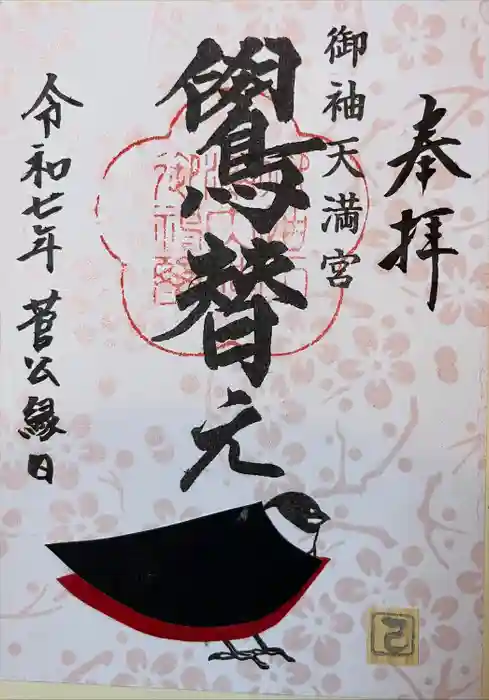 奉拝
御袖天満宮
鷽替元
令和七年 菅公縁日
己